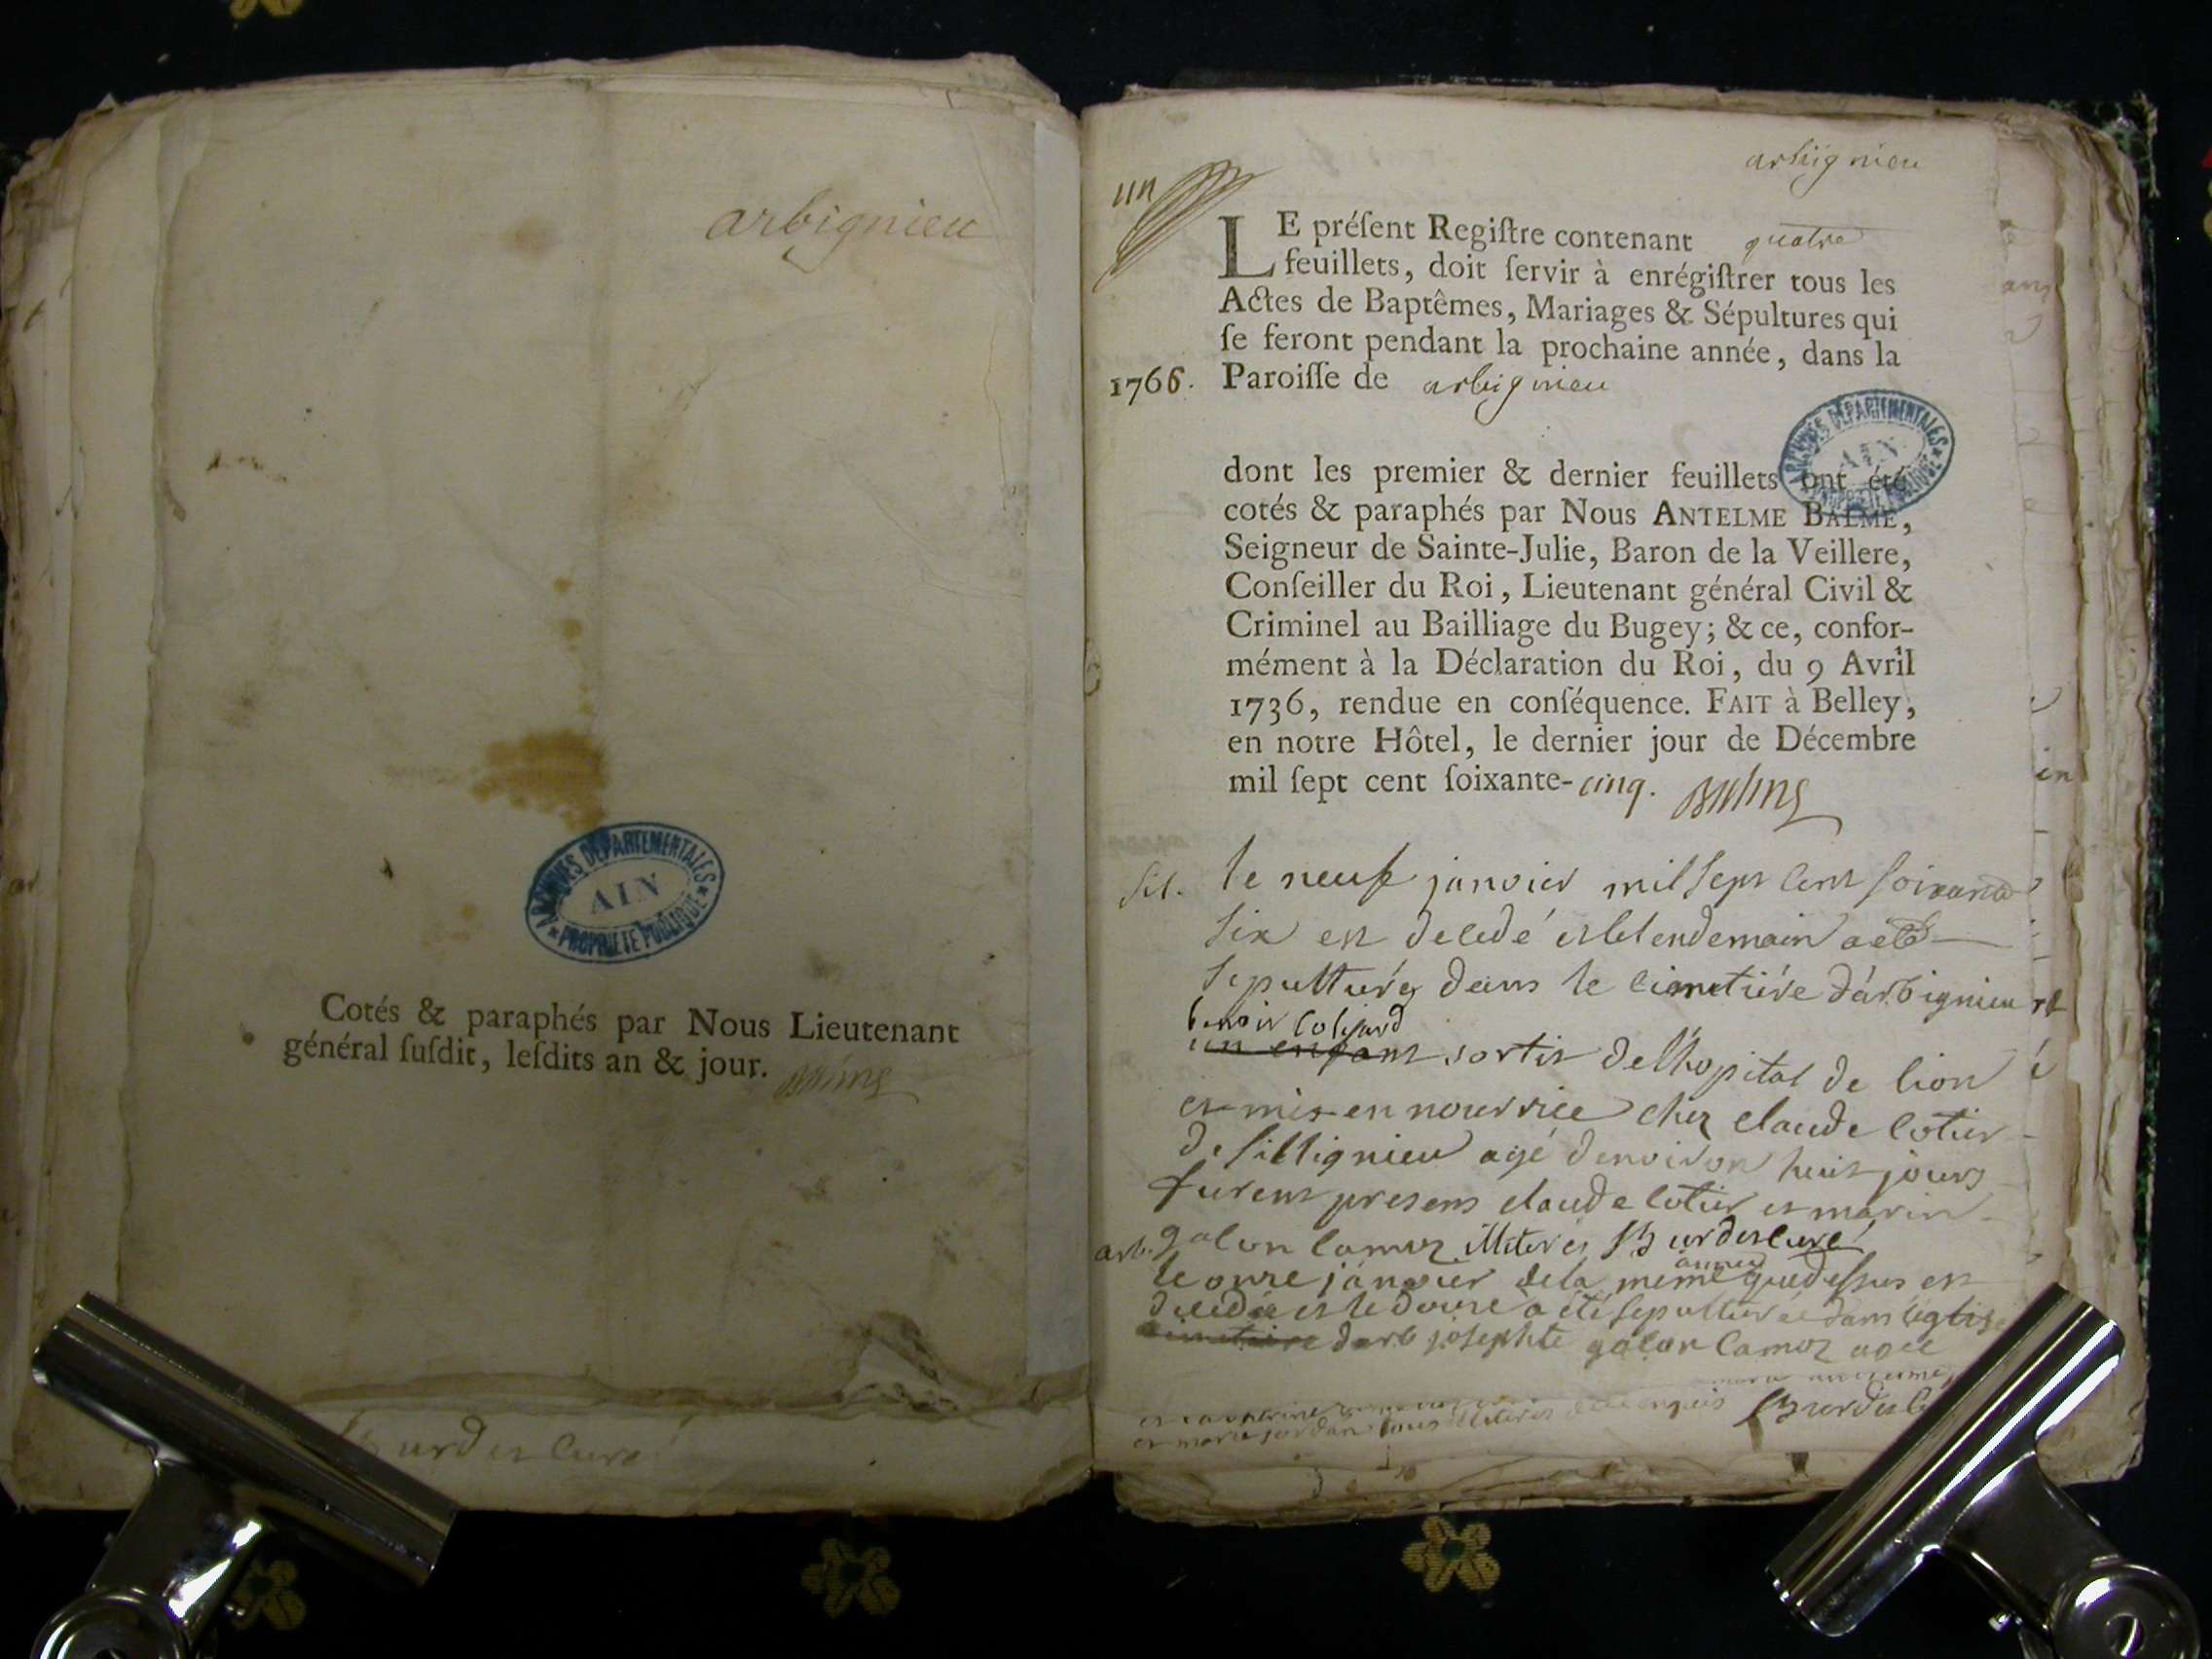 arbignieu
ARCHIVES DÉPARTEMENTALES
AIN
PROPRIÉTÉ PUBLIQUE
Cotés & paraphés par Nous Lieutenant
général ſuſdit, leſdits an & jour. Balme
Burdet Curé
un
arbignieu
LE préſent Regiſtre contenant quatre
feuillets, doit ſervir à enrégiſtrer tous les
Actes de Baptêmes, Mariages & Sépultures qui
ſe feront pendant la prochaine année, dans la
1766. Paroiſſe de arbignieu
ARCHIVES DÉPARTEMENTALES
AIN
PROPRIÉTÉ PUBLIQUE
dont les premier & dernier feuillets ont été
cotés & paraphés par Nous ANTELME BALME,
Seigneur de Sainte-Julie, Baron de la Veillere,
Conſeiller du Roi, Lieutenant général Civil &
Criminel au Bailliage du Bugey; & ce, confor-
mément à la Déclaration du Roi, du 9 Avril
1736, rendue en conſéquence. FAIT à Belley,
en notre Hôtel, le dernier jour de Décembre
mil ſept cent ſoixante-cinq. Balme
Sil. le neuf janvier mil sept cent soixante
six est decedé et le lendemain a eté
sepulturé dans le cimetiére d'arbignieu
benoit
un enfant sortit de l'hopital de lion
et mis en nourrice chez claude cotier
de sillignieu agé d'environ huit jours
furent presens claude cotier et marin
arb. galon lamoz illiterés Burdet curé
année
le onze janvier de la meme que dessus est
decedée et le douze a été sepulturée dans l'eglise
cimetiere d'arb josephte galon lamoz agée
et marie jordan tous illiterés Burdet